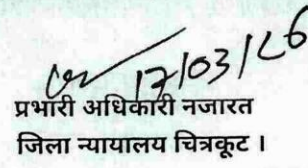 17/03/26
प्रभारी अधिकारी नजारत
जिला न्यायालय चित्रकूट ।